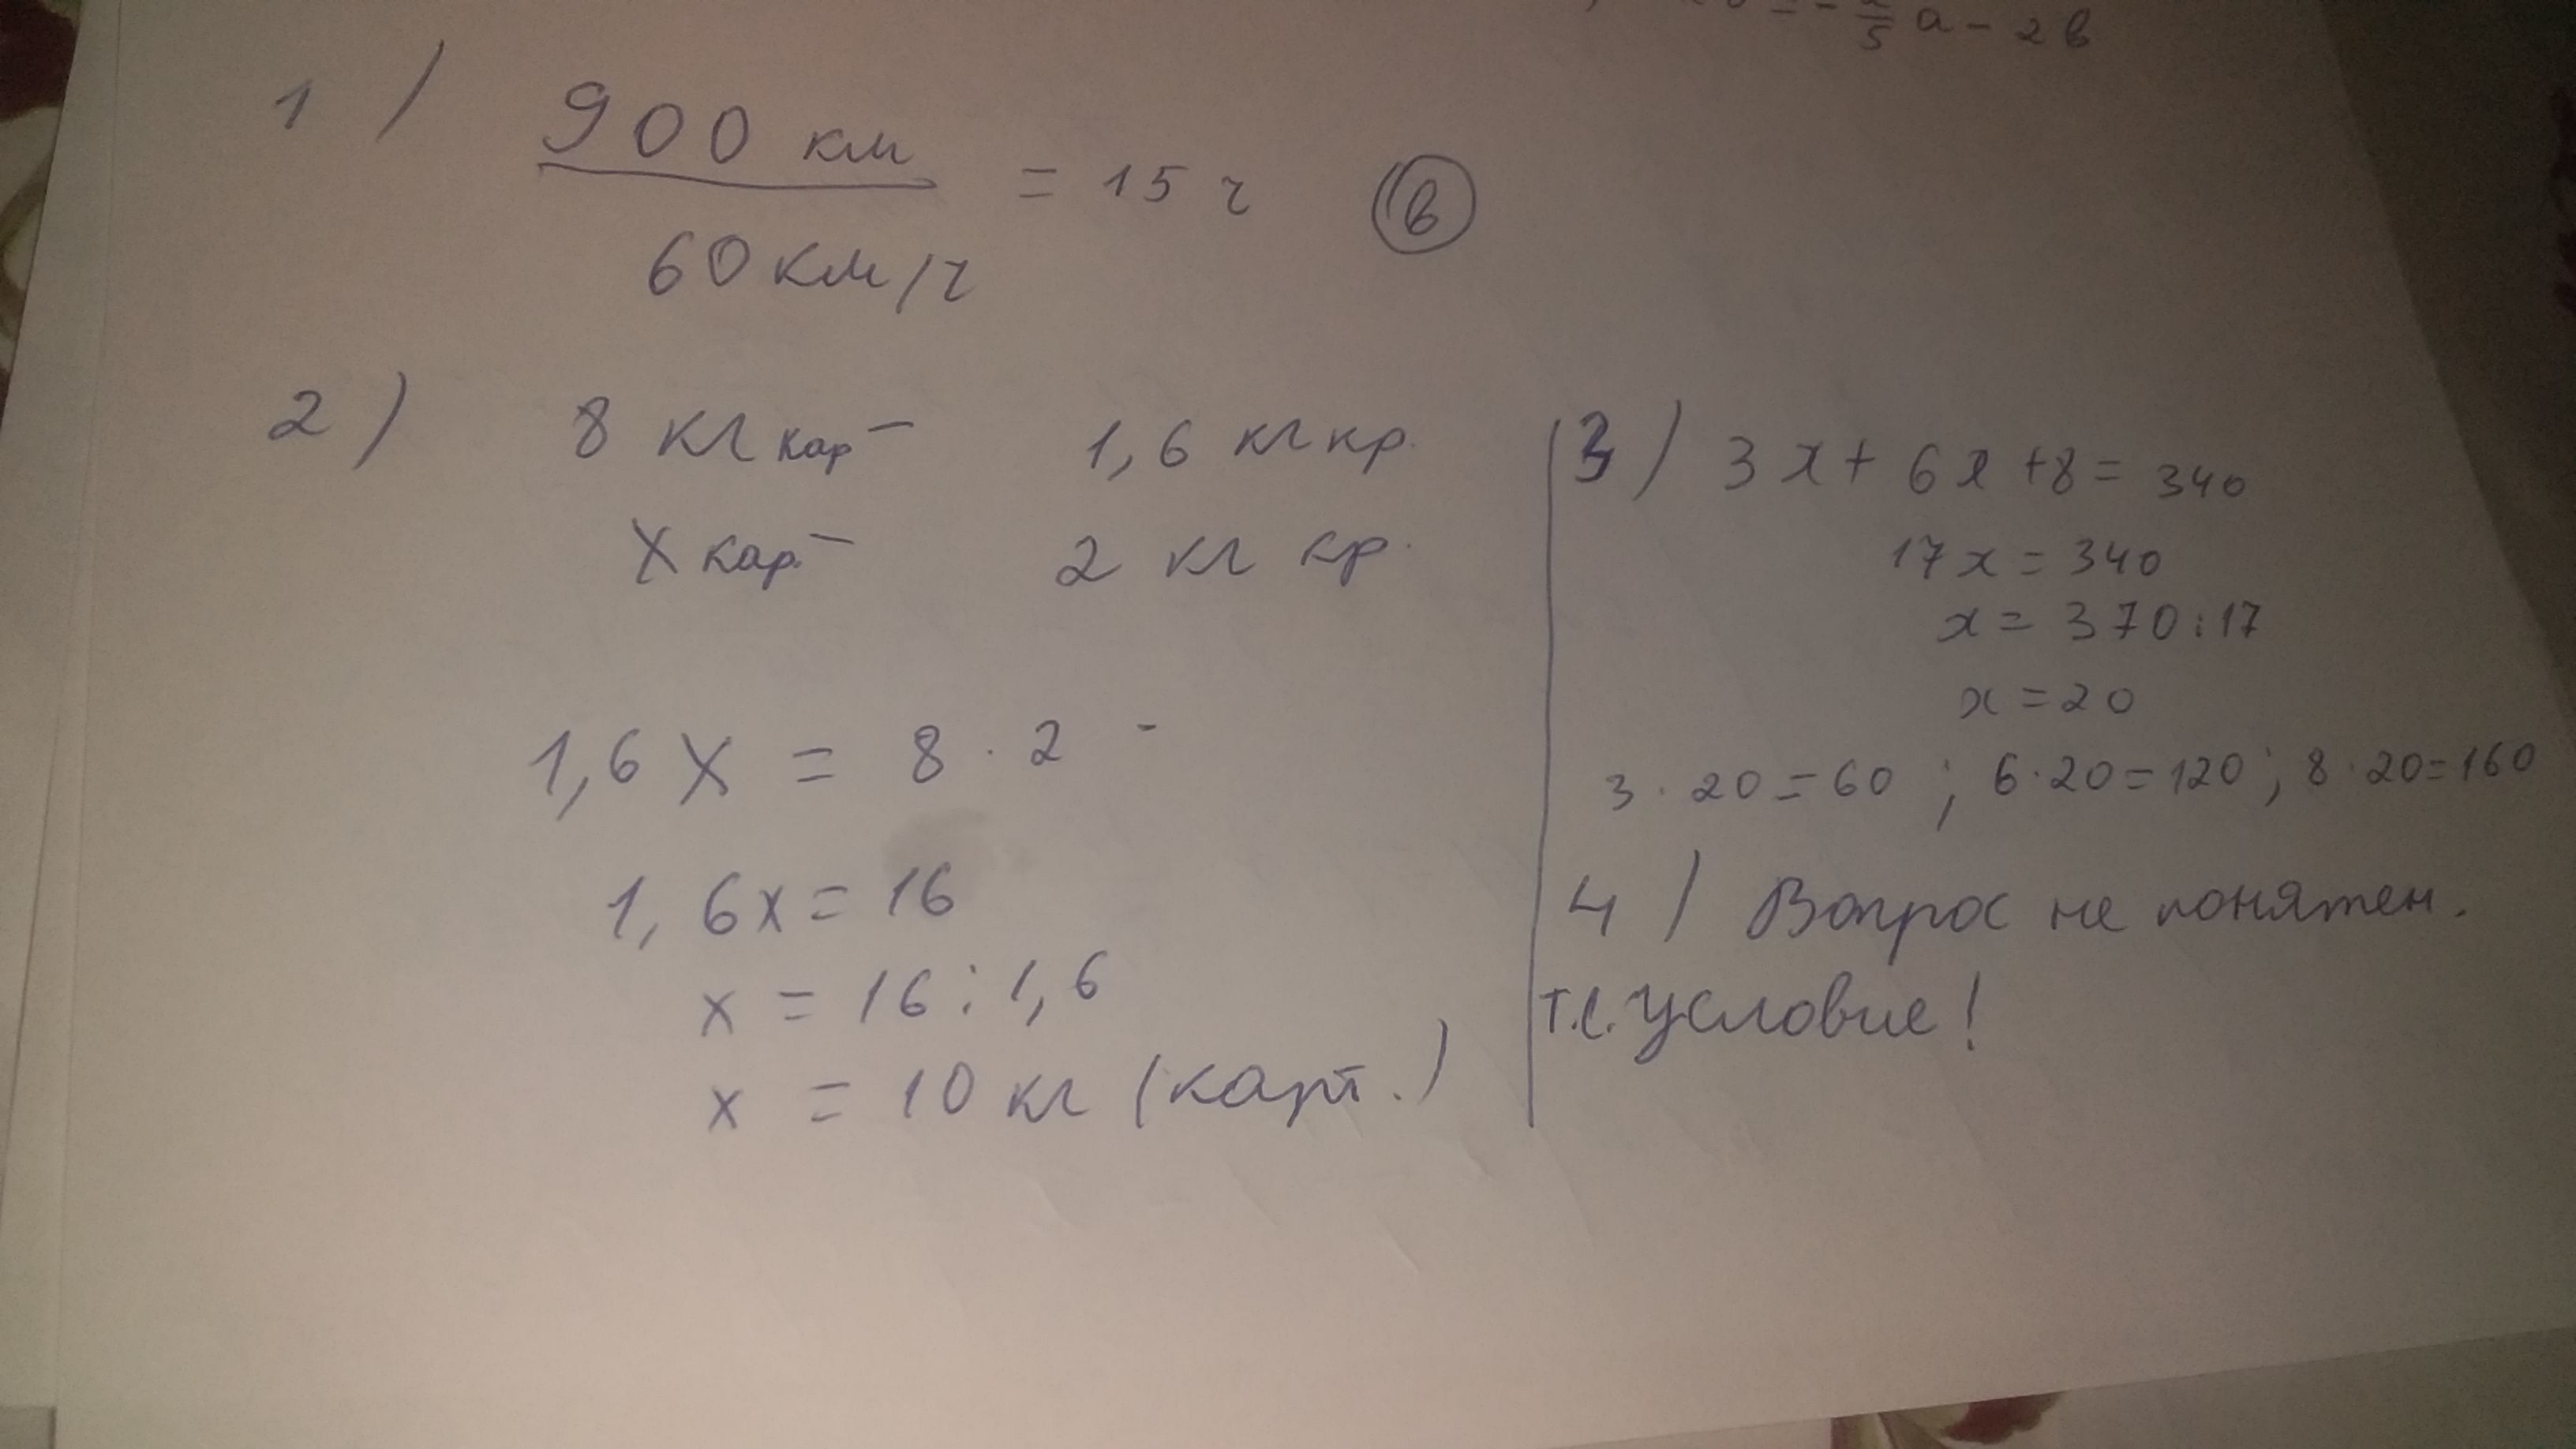 = - /5 a - 2в
1) 900 км
60 км/ч
= 15 ч (в)
2) 8 кг кар - 1,6 кг кр.
X кар. - 2 кг кр.
1,6 X = 8 · 2 -
1,6x = 16
x = 16 : 1,6
x = 10 кг (карт.)
3) 3x + 6x + 8 = 340
17x = 340
x = 370 : 17
x = 20
3 · 20 = 60 ; 6 · 20 = 120 ; 8 · 20 = 160
4) Вопрос не понятен.
т.е. условие!